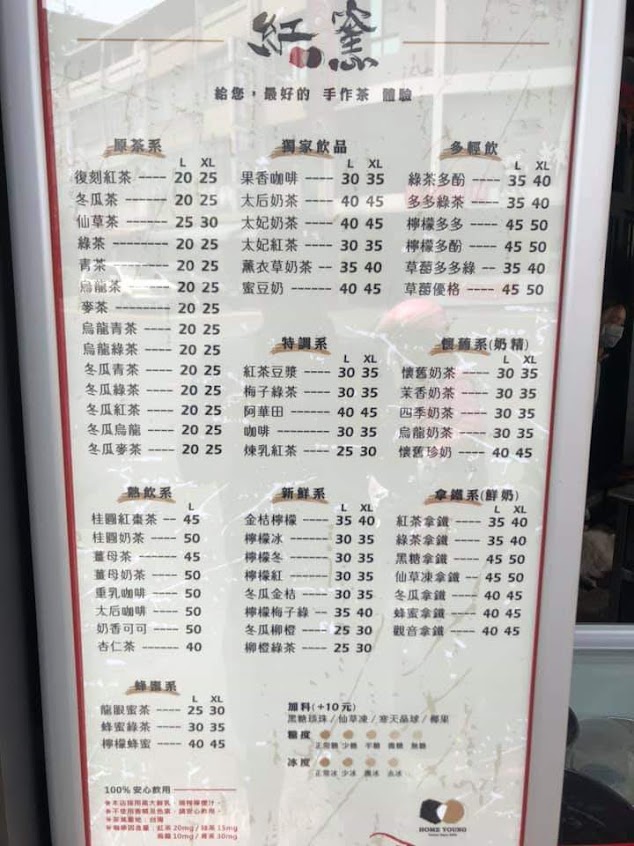 紅窯
給您，最好的 手作茶 體驗
原茶系
L XL
復刻紅茶 ----- 20 25
冬瓜茶 ------- 20 25
仙草茶 ------- 25 30
綠茶 --------- 20 25
青茶 --------- 20 25
烏龍茶 ------- 20 25
麥茶 --------- 20 25
烏龍青茶 ---- 20 25
烏龍綠茶 ---- 20 25
冬瓜青茶 ---- 20 25
冬瓜綠茶 ---- 20 25
冬瓜紅茶 ---- 20 25
冬瓜烏龍 ---- 20 25
冬瓜麥茶 ---- 20 25
獨家飲品
L XL
果香咖啡 ---- 30 35
太后奶茶 ---- 40 45
太妃奶茶 ---- 40 45
太妃紅茶 ---- 30 35
薰衣草奶茶 -- 35 40
蜜豆奶 ------ 40 45
多輕飲
L XL
綠茶多酚 ---- 35 40
多多綠茶 ---- 35 40
檸檬多多 ---- 45 50
檸檬多酚 ---- 45 50
草莓多多綠 -- 35 40
草莓優格 ---- 45 50
特調系
L XL
紅茶豆漿 ---- 30 35
梅子綠茶 ---- 30 35
阿華田 ------ 40 45
咖啡 -------- 30 35
煉乳紅茶 ---- 25 30
懷舊系(奶精)
L XL
懷舊奶茶 ---- 30 35
茉香奶茶 ---- 30 35
四季奶茶 ---- 30 35
烏龍奶茶 ---- 30 35
懷舊珍奶 ---- 40 45
熱飲系
L
桂圓紅棗茶 -- 45
桂圓奶茶 ---- 50
薑母茶 ------ 45
薑母奶茶 ---- 50
重乳咖啡 ---- 50
太后咖啡 ---- 50
奶香可可 ---- 50
杏仁茶 ------ 40
新鮮系
L XL
金桔檸檬 ---- 35 40
檸檬冰 ------ 30 35
檸檬冬 ------ 30 35
檸檬紅 ------ 30 35
冬瓜金桔 ---- 30 35
檸檬梅子綠 -- 35 40
冬瓜柳橙 ---- 25 30
柳橙綠茶 ---- 25 30
拿鐵系(鮮奶)
L XL
紅茶拿鐵 ---- 35 40
綠茶拿鐵 ---- 35 40
黑糖拿鐵 ---- 45 50
仙草凍拿鐵 -- 45 50
冬瓜拿鐵 ---- 40 45
蜂蜜拿鐵 ---- 40 45
觀音拿鐵 ---- 40 45
蜂蜜系
L XL
龍眼蜜茶 ---- 25 30
蜂蜜綠茶 ---- 30 35
檸檬蜂蜜 ---- 40 45
加料(+10元)
黑糖珍珠/仙草凍/寒天晶球/椰果
糖度
正常糖 少糖 半糖 微糖 無糖
冰度
正常冰 少冰 微冰 去冰
100% 安心飲用
紅茶 20mg / 綠茶 15mg
HOME YOUNG